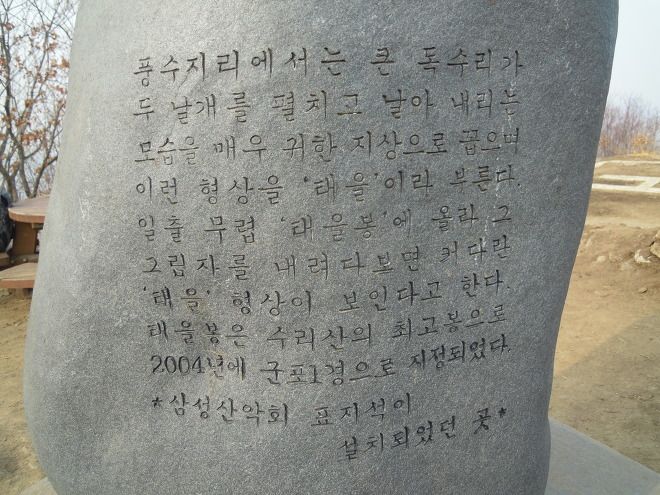 풍수지리에서는 큰 독수리가
두 날개를 펼치고 날아 내리는
모습을 매우 귀한 지상으로 꼽으며
이런 형상을 '태을'이라 부른다.
일출 무렵 '태을봉'에 올라 그
그림자를 내려다보면 커다란
'태을' 형상이 보인다고 한다.
태을봉은 수리산의 최고봉으로
2004년에 군포1경으로 지정되었다.
*삼성산악회 표지석이
설치되었던 곳*